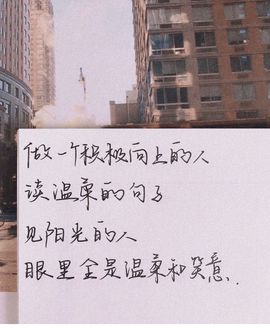 做一个积极向上的人
读温柔的句子
见阳光的人
眼里全是温柔和笑意.